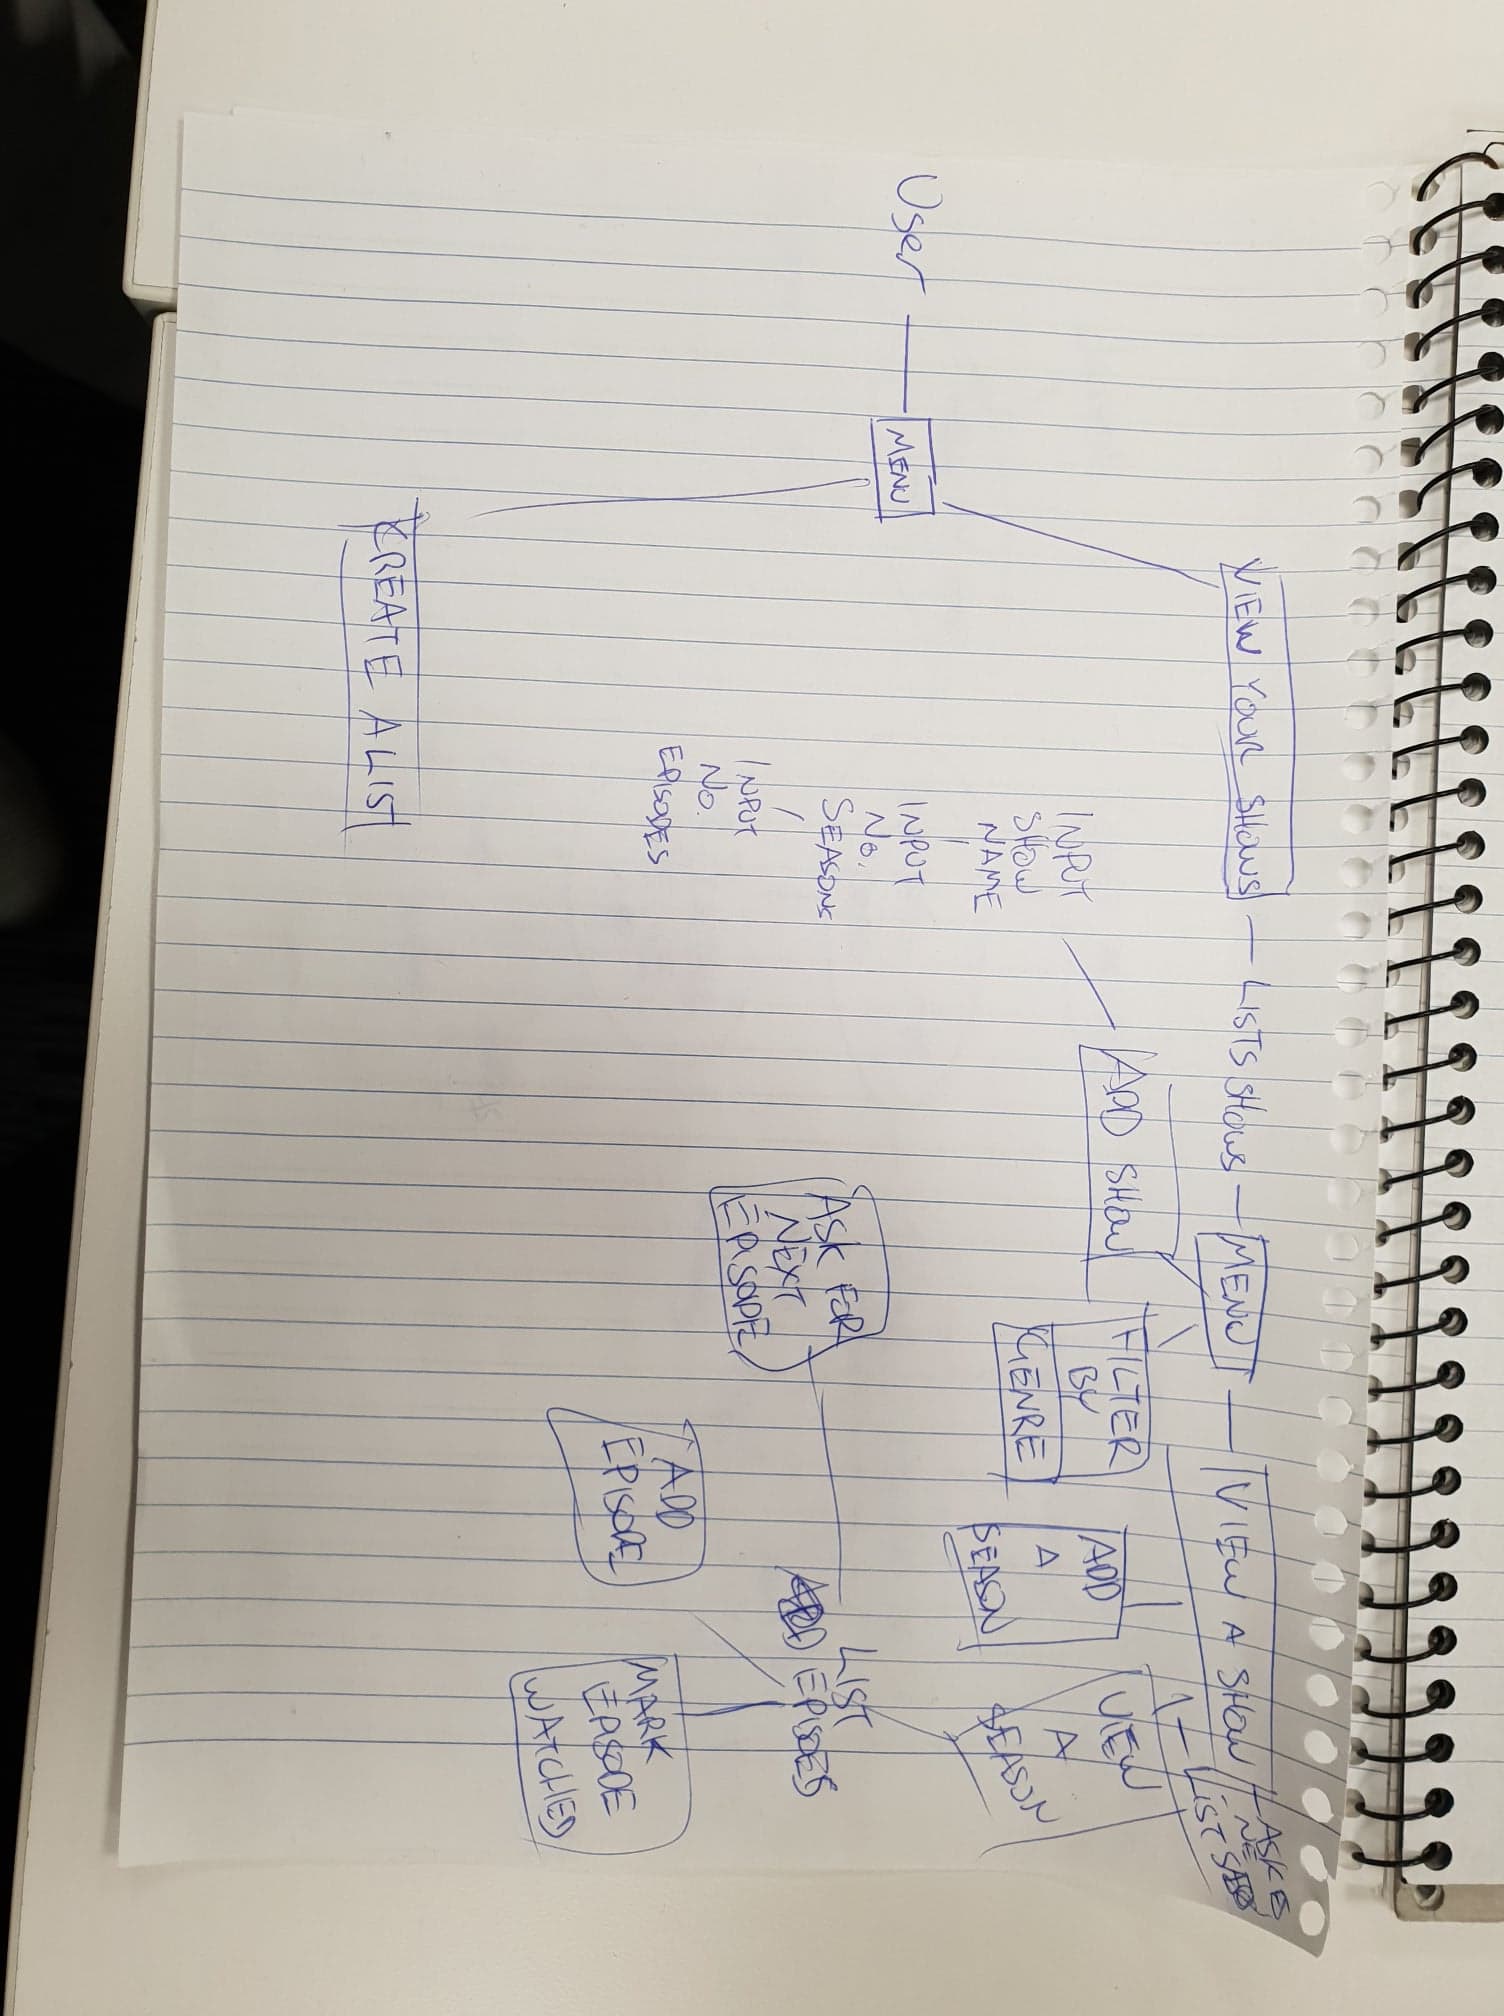 User
MENU
VIEW YOUR SHOWS
LISTS SHOWS
MENU
VIEW A SHOW
ASK
NE
LIST
ADD SHOW
INPUT
SHOW
NAME
INPUT
NO.
SEASONS
INPUT
NO.
EPISODES
FILTER
BY
GENRE
ADD
A
SEASON
VIEW
A
SEASON
LIST
EPISODES
ASK FOR
NEXT
EPISODE
ADD
EPISODE
MARK
EPISODE
WATCHED
CREATE A LIST